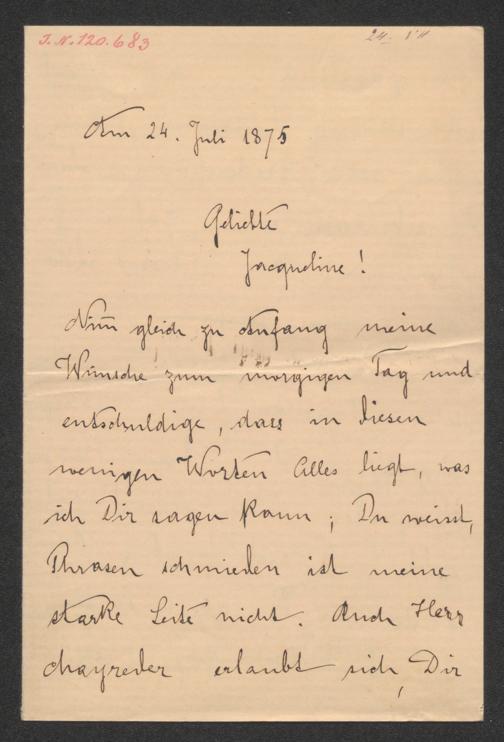 J.N. 120.683
24. VII
Am 24. Juli 1875
Geliebte
Jacqueline!
Nim̄ gleich zu Anfang meine
Wünsche zum morgigen Tag und
entschuldige, dass in diesen
wenigen Worten Alles liegt, was
ich Dir sagen kann; Du weisst,
Phrasen schmieden ist meine
starke Seite nicht. Auch Herr
Mayreder erlaubt sich, Dir